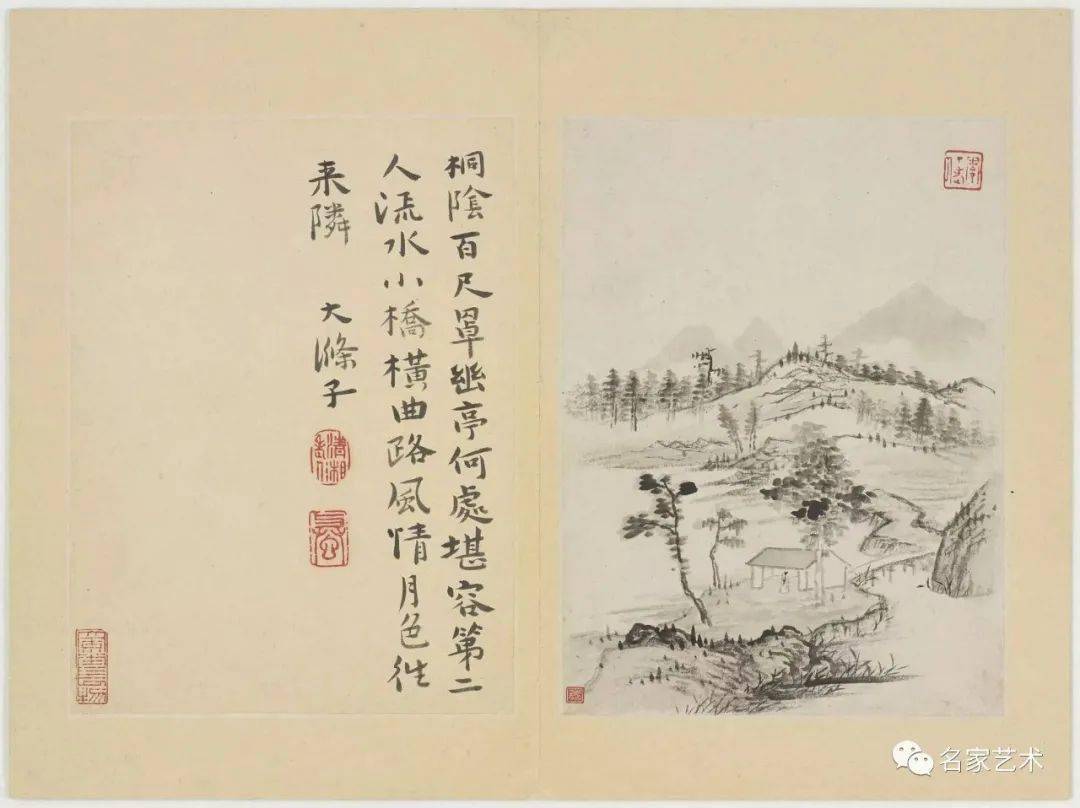 桐陰百尺罩幽亭何處堪容第二
人流水小橋橫曲路風情月色往
来隣
大滌子
清湘
名家艺术